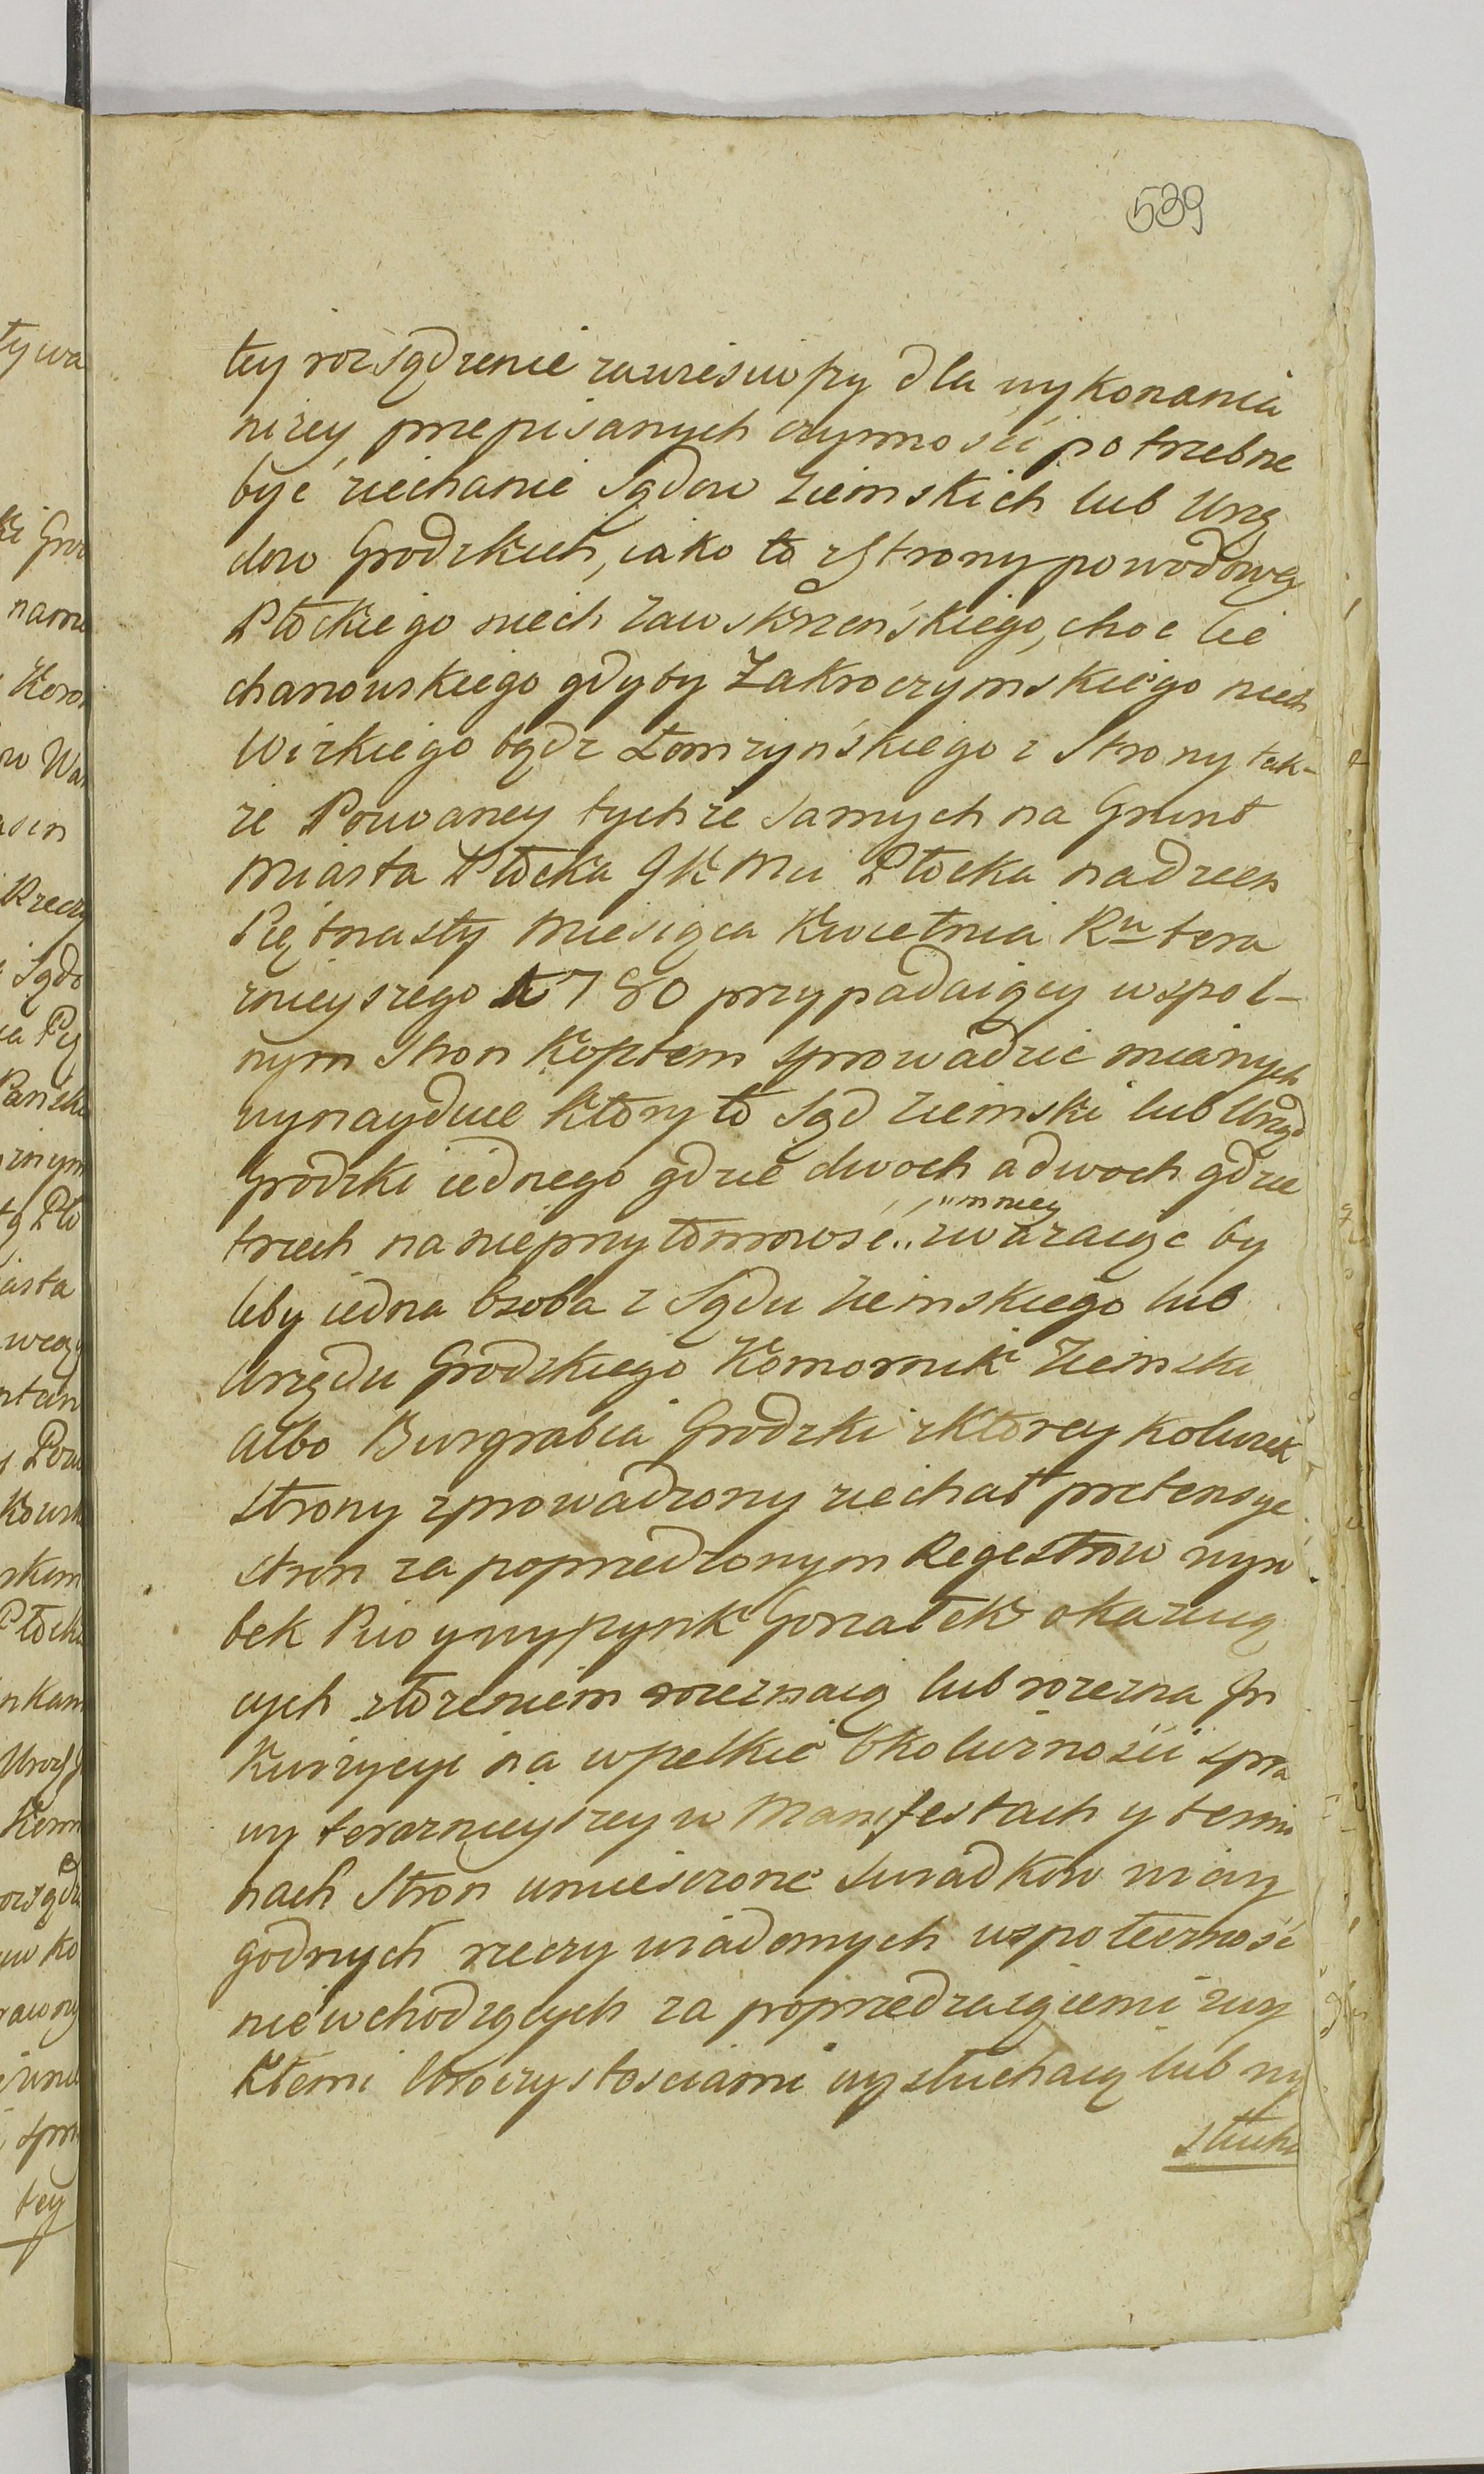 539
tey rozsądzenie zawiesiwszy dla wykonania
niżey przepisanych czynności potrzebne
być ziechanie Sądow Ziemskich lub Urzę
dow Grodzkich, iako to z Strony powodowey
Płockiego niech Zawskrzeńskiego, choc Cie
chanowskiego gdyby Zakroczymskiego niech
Wizkiego bądz Łomzyńskiego z Strony tak-
że Pozwaney tychże samych na Grunt
Miasta Płocka JK Mci Płocka na dzien
Piętnasty Miesiąca Kwietnia Ru tera
znieyszego 1780 przypadaiący wspol-
nym Stron Kosztem sprowadzić mianych
wynayduie Ktory to Sąd Ziemski lub Urząd
Grodzki iednego gdzie dwoch a dwoch gdzie
trzech na nieprzytomnosć .. mniey zwazaiąc by
leby iedna Osoba z Sądu Ziemskiego lub
Urzędu Grodzkiego Komornik Ziemski
albo Burgrabia Grodzki z Ktorey kolwiek
strony zprowadzony ziechał pretensye
stron za poprzedzonym Regestrow wyro
bek Piw y wyszynk Gorzałek okazuią
cych złożeniem rozeznaią lub rozezna In
kwizycye na wszelkie Okoliczności spra
wy teraznieyszey w Manifestach y termi
nach Stron umieszczone Swiadkow wiary
godnych rzeczy wiadomych wspołeczność
niewchodzących za poprzedzaiącemi zwy
kłemi Uroczystosciami wysłuchaią lub wy
słucha